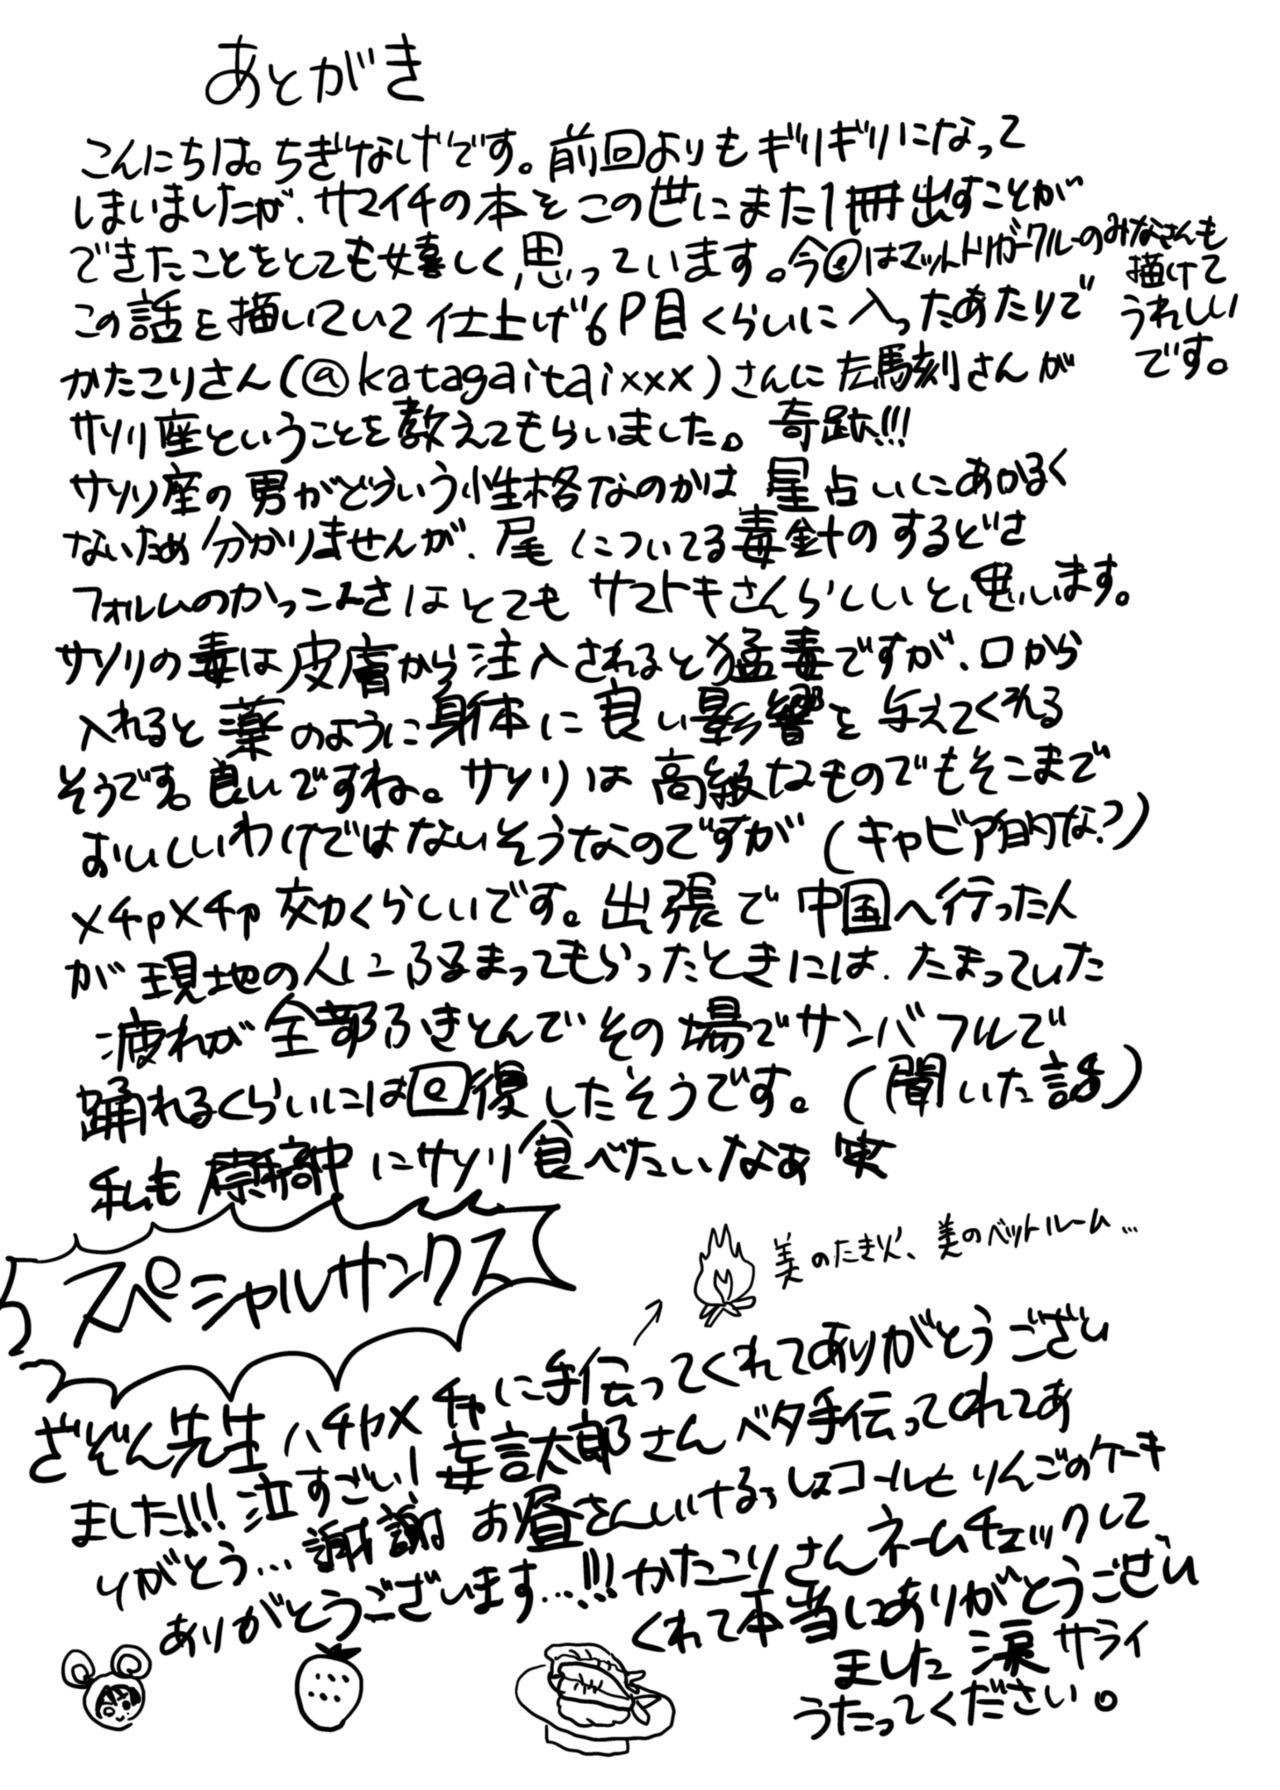 あとがき
こんにちは。ちぎなげです。前回よりもギリギリになって
しまいましたが、サマイチの本をこの世にまた1冊出すことが
できたことをとても嬉しく思っています。今回はマットリガークルーのみなさんも
描けて
うれしい
です。
この話を描いていて仕上げ6P目くらいに入ったあたりで
かたこりさん(@katagaitaixxx)さんに左馬刻さんが
サソリ座ということを教えてもらいました。奇跡!!!
サソリ座の男がどういう性格なのかは星占いにあかるく
ないため分かりませんが、尾についてる毒針のするどさ
フォルムのかっこよさはとてもサマトキさんらしいと思います。
サソリの毒は皮膚から注入されると猛毒ですが、口から
入れると薬のように身体に良い影響を与えてくれる
そうです。良いですね。サソリは高級なものでもそこまで
おいしいわけではないそうなのですが(キャビア的な?)
メチャメチャ効くらしいです。出張で中国へ行った人
が現地の人にふるまってもらったときには、たまっていた
疲れが全部ふきとんでその場でサンバフルで
踊れるくらいには回復したそうです。(聞いた話)
私も原稿中にサソリ食べたいなぁ 笑
スペシャルサンクス
美のたき火、美のベットルーム…
ざぞん先生ハチャメチャに手伝ってくれてありがとうござい
ました!!!泣すごい!妄言太郎さんベタ手伝ってくれてあ
りがとう…謝謝 お昼さんいけるっしょコールとりんごのケーキ
ありがとうございます…!!!かたこりさんネームチェックして
くれて本当にありがとうござい
ました 涙 サライ
うたってください。